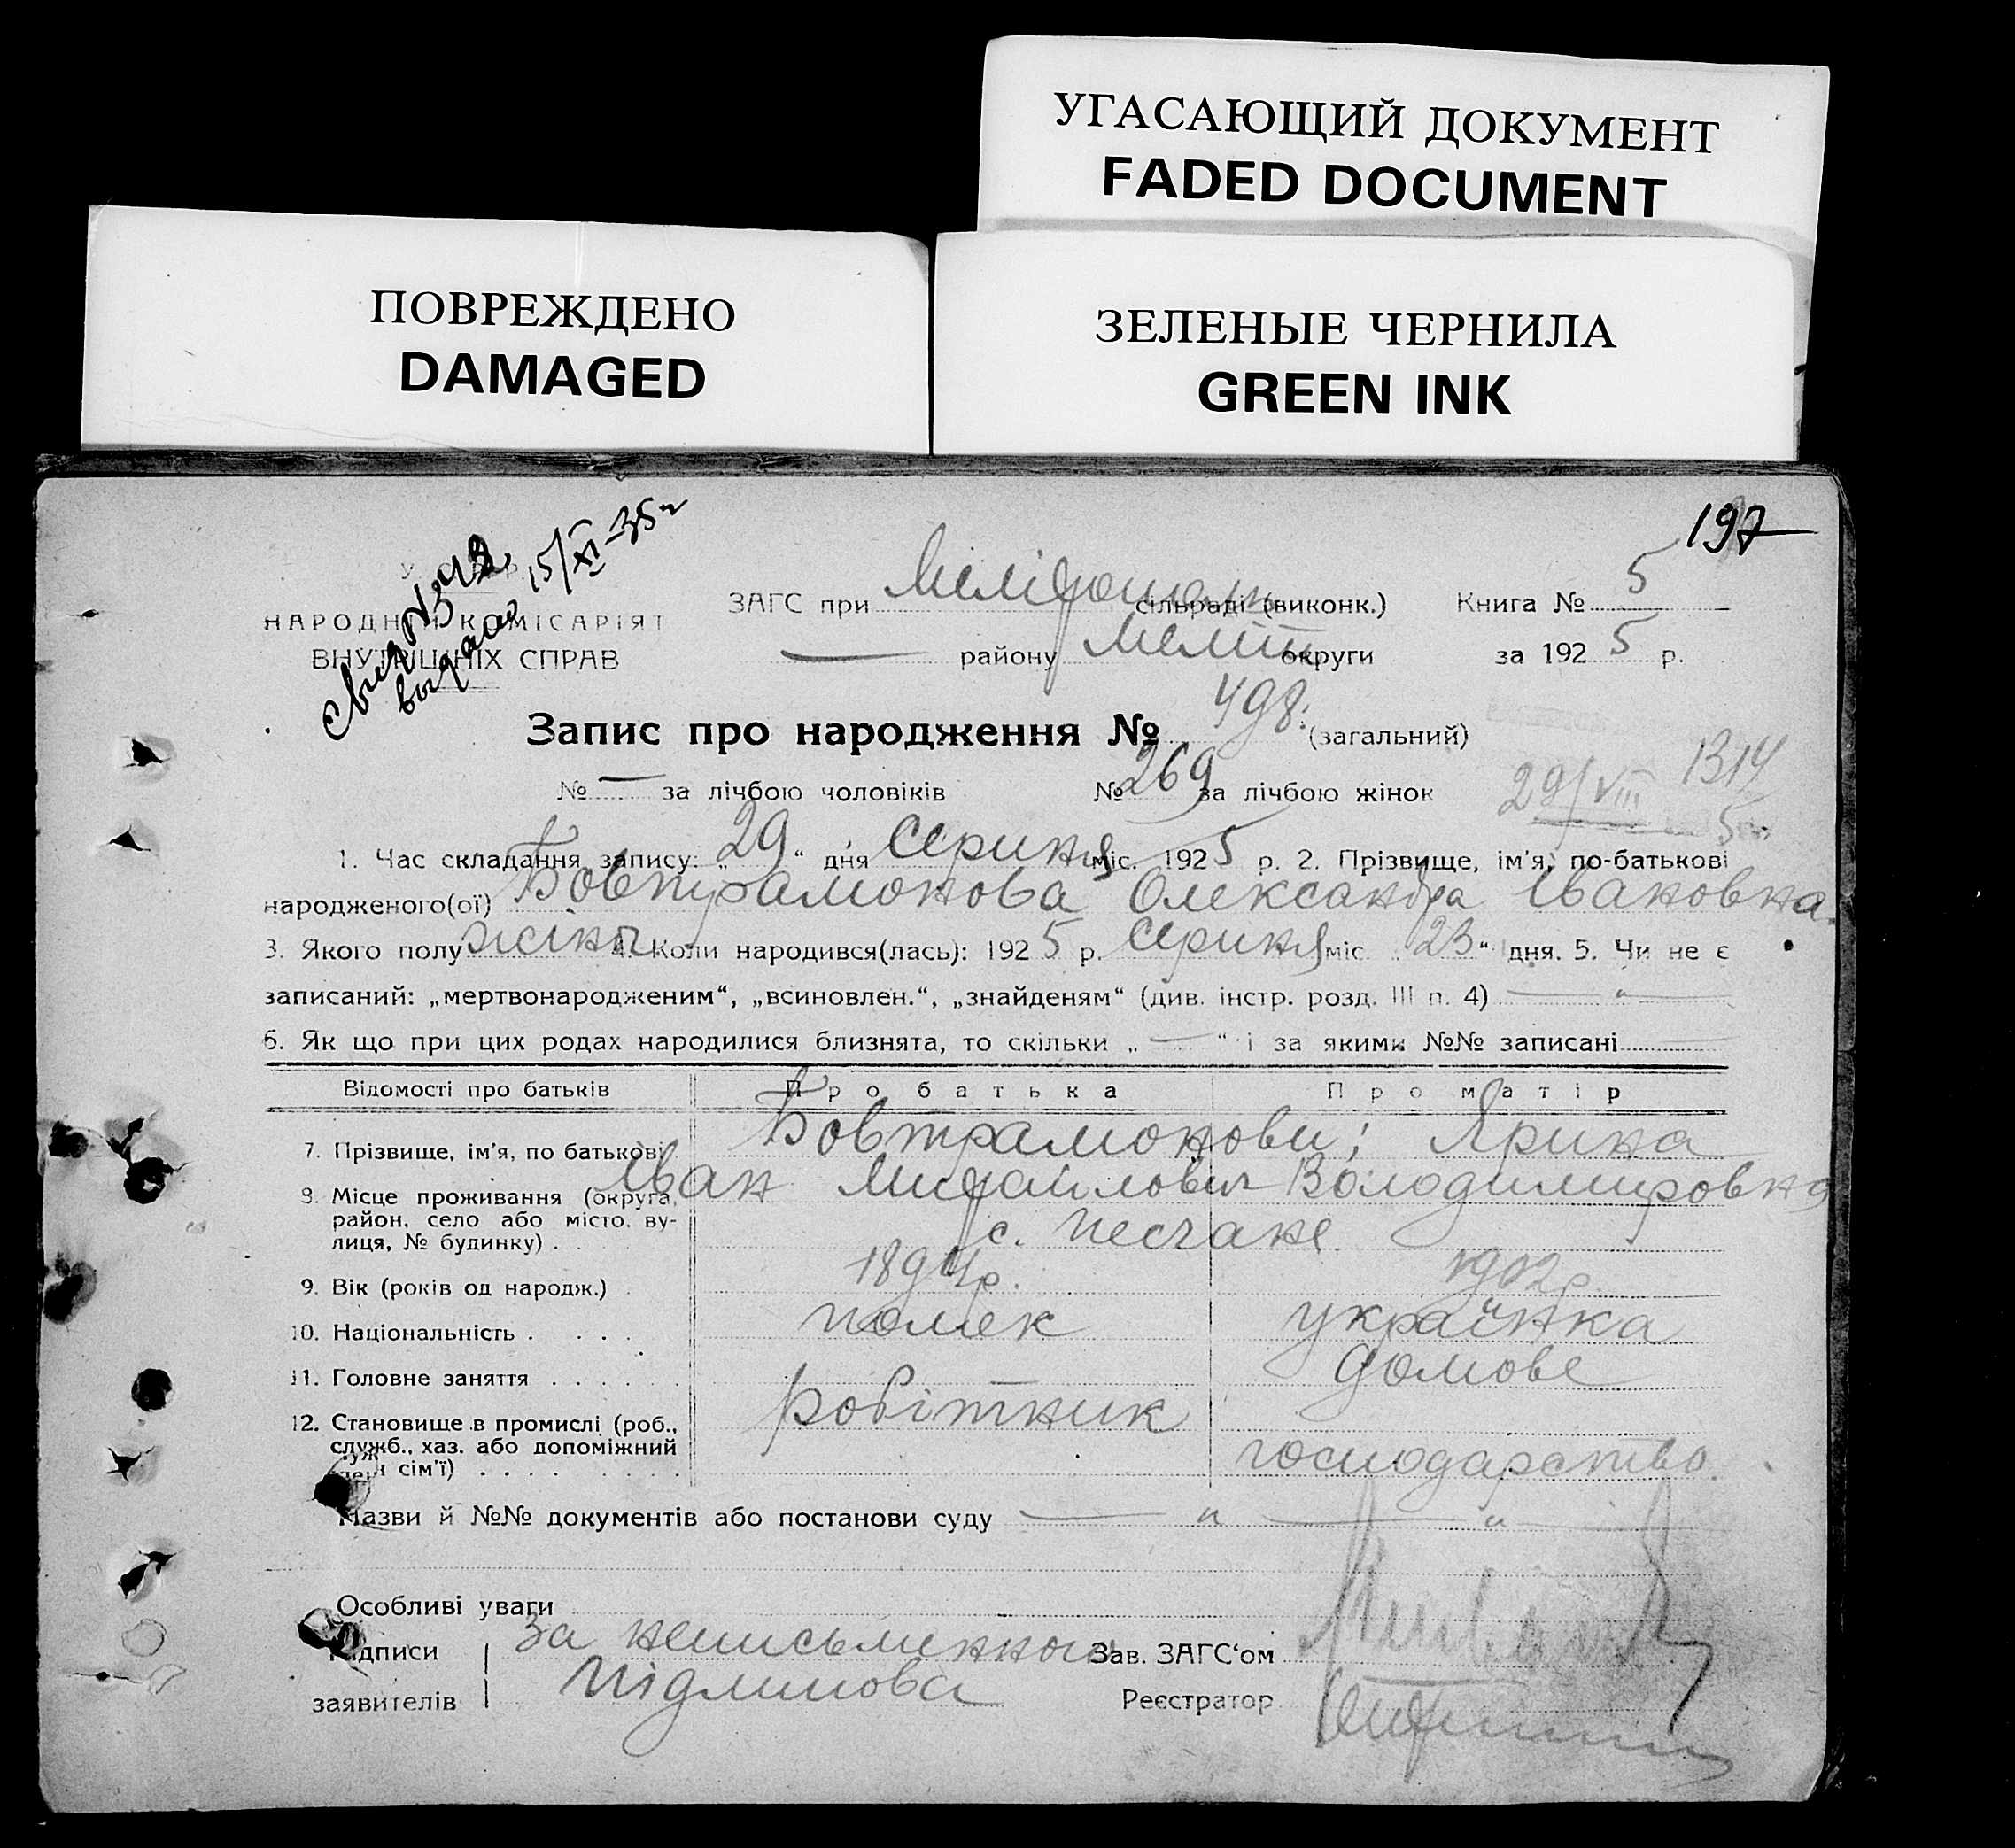 УГАСАЮЩИЙ ДОКУМЕНТ
FADED DOCUMENT
ПОВРЕЖДЕНО
DAMAGED
ЗЕЛЕНЫЕ ЧЕРНИЛА
GREEN INK
197
Свид N 542
выдано 15/XI-35г
НАРОДНИЙ КОМІСАРІЯТ
ВНУТРІШНІХ СПРАВ
ЗАГС при сільраді (виконк.) Книга № 5
— району Меліт округи за 1925 р.
Запис про народження № 498. (загальний)
№ — за лічбою чоловіків № 269 за лічбою жінок
29/VIII 1314
5
1. Час складання запису: „29“ дня Серпня міс. 1925 р. 2. Прізвище, ім'я, по-батькові
народженого(ої) Бовтрамонова Олександра Івановна.
3. Якого полу жіноч. 4. Коли народився(лась): 1925 р. Серпня міс. „23“ дня. 5. Чи не є
записаний: „мертвонародженим“, „всиновлен.“, „знайденям“ (див. інстр. розд. III п. 4) — „ —
6. Як що при цих родах народилися близнята, то скільки „ — “ і за якими №№ записані —
Відомості про батьків Про батька Про матір
7. Прізвище, ім'я, по батькові Бовтрамонови; Ярина
Іван Михайлович Володимировна
8. Місце проживання (округа,
район, село або місто, ву-
лиця, № будинку) . с. Песчане
9. Вік (років од народж.) 1894р. 1902р.
10. Національність . . . . поляк українка
11. Головне заняття . . . . . . домове
12. Становище в промислі (роб., робітник
служб., хаз. або допоміжний
член сім'ї) . . . . . . . . господарство.
Назви й №№ документів або постанови суду — „ — „ —
Особливі уваги
Підписи за неписьменного Зав. ЗАГС‘ом
заявителів Реєстратор